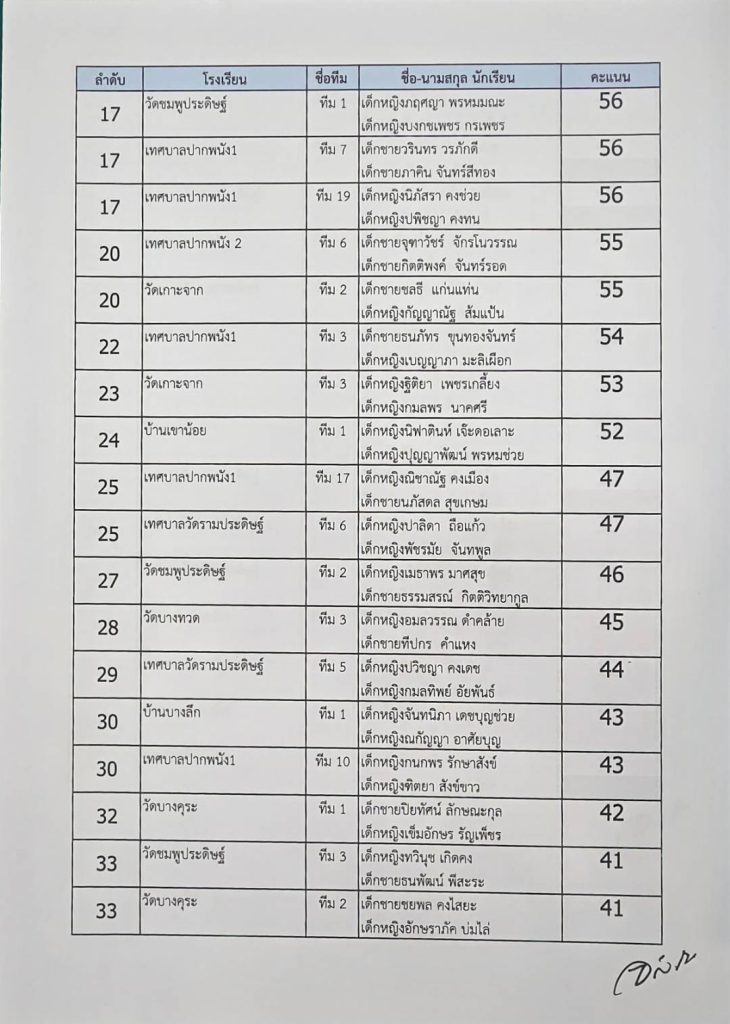 ลำดับ โรงเรียน ชื่อทีม ชื่อ-นามสกุล นักเรียน คะแนน
17 วัดชมพูประดิษฐ์ ทีม 1 เด็กหญิงภฤศญา พรหมมณะ 56
เด็กหญิงบงกชเพชร กรเพชร
17 เทศบาลปากพนัง1 ทีม 7 เด็กชายวรินทร วรภักดี 56
เด็กชายภาคิน จันทร์สีทอง
17 เทศบาลปากพนัง1 ทีม 19 เด็กหญิงนิภัสรา คงช่วย 56
เด็กหญิงปพิชญา คงทน
20 เทศบาลปากพนัง 2 ทีม 6 เด็กชายจุฑาวัชร์ จักรโนวรรณ 55
เด็กชายกิตติพงศ์ จันทร์รอด
20 วัดเกาะจาก ทีม 2 เด็กชายชลธี แก่นแท่น 55
เด็กหญิงกัญญาณัฐ ส้มแป้น
22 เทศบาลปากพนัง1 ทีม 3 เด็กชายธนภัทร ขุนทองจันทร์ 54
เด็กหญิงเบญญาภา มะลิเผือก
23 วัดเกาะจาก ทีม 3 เด็กหญิงฐิติยา เพชรเกลี้ยง 53
เด็กหญิงกมลพร นาคศรี
24 บ้านเขาน้อย ทีม 1 เด็กหญิงนิฟาตินห์ เจ๊ะดอเลาะ 52
เด็กหญิงปุญญาพัฒน์ พรหมช่วย
25 เทศบาลปากพนัง1 ทีม 17 เด็กหญิงณิชาณัฐ คงเมือง 47
เด็กชายนภัสดล สุขเกษม
25 เทศบาลวัดรามประดิษฐ์ ทีม 6 เด็กหญิงปาลิตา ถือแก้ว 47
เด็กหญิงพัชรมัย จันทพูล
27 วัดชมพูประดิษฐ์ ทีม 2 เด็กหญิงเมธาพร มาศสุข 46
เด็กชายธรรมสรณ์ กิตติวิทยากูล
28 วัดบางทวด ทีม 3 เด็กหญิงอมลวรรณ ดำคล้าย 45
เด็กชายทีปกร คำแหง
29 เทศบาลวัดรามประดิษฐ์ ทีม 5 เด็กหญิงปวิชญา คงเดช 44
เด็กหญิงกมลทิพย์ อัยพันธ์
30 บ้านบางลึก ทีม 1 เด็กหญิงจันทนิภา เดชบุญช่วย 43
เด็กหญิงณกัญญา อาศัยบุญ
30 เทศบาลปากพนัง1 ทีม 10 เด็กหญิงกนกพร รักษาสังข์ 43
เด็กหญิงฑิตยา สังข์ขาว
32 วัดบางคุระ ทีม 1 เด็กชายปิยทัศน์ ลักษณะกุล 42
เด็กหญิงเข็มอักษร รัญเพ็ชร
33 วัดชมพูประดิษฐ์ ทีม 3 เด็กหญิงทวินุช เกิดคง 41
เด็กชายธนพัฒน์ พีสะระ
33 วัดบางคุระ ทีม 2 เด็กชายชยพล คงไสยะ 41
เด็กหญิงอักษราภัค บ่มไล่